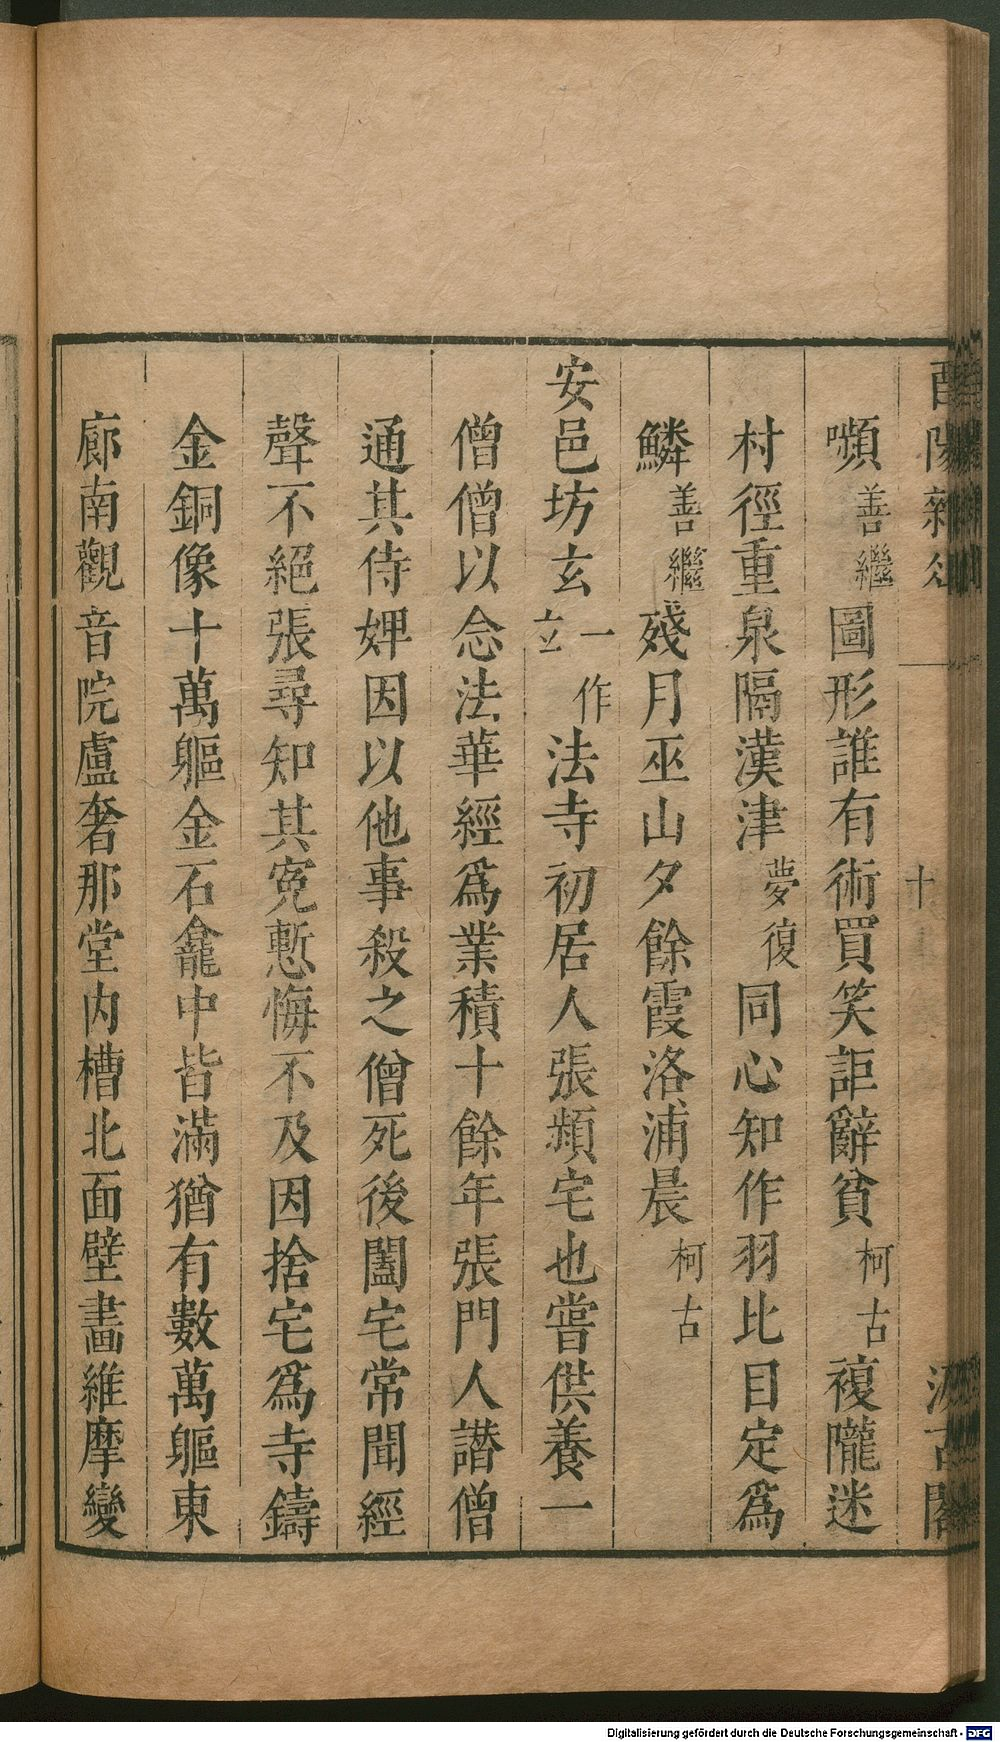 嚬善繼圖形誰有術買笑詎辭貧柯古複隴迷
村徑重泉隔漢津夢復同心知作羽比目定爲
鱗善繼殘月巫山夕餘霞洛浦晨柯古
安邑坊玄一作立法寺初居人張頻宅也嘗供養一
僧僧以念法華經爲業積十餘年張門人譖僧
通其侍婢因以他事殺之僧死後闔宅常聞經
聲不絕張尋知其寃慙悔不及因捨宅爲寺鑄
金銅像十萬軀金石龕中皆滿猶有數萬軀東
廊南觀音院盧奢那堂內槽北面壁畫維摩變
十
Digitalisierung gefördert durch die Deutsche Forschungsgemeinschaft - DFG